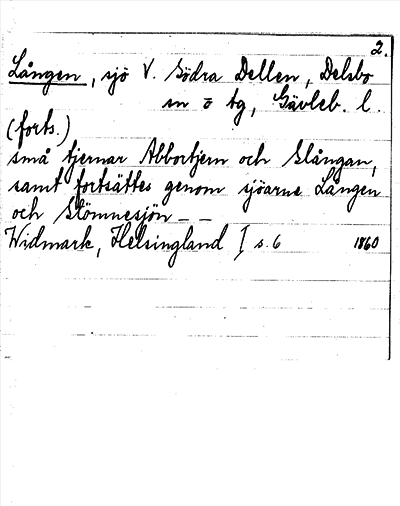 2.
Lången, sjö V. Södra Dellen, Delsbo
sn o tg, Gävleb. l.
(forts.)
små tjernar Abbortjern och Slångan,
samt fortsättes genom sjöarne Lången
och Glömnesjön – –
Widmark, Helsingland I s. 6 1860